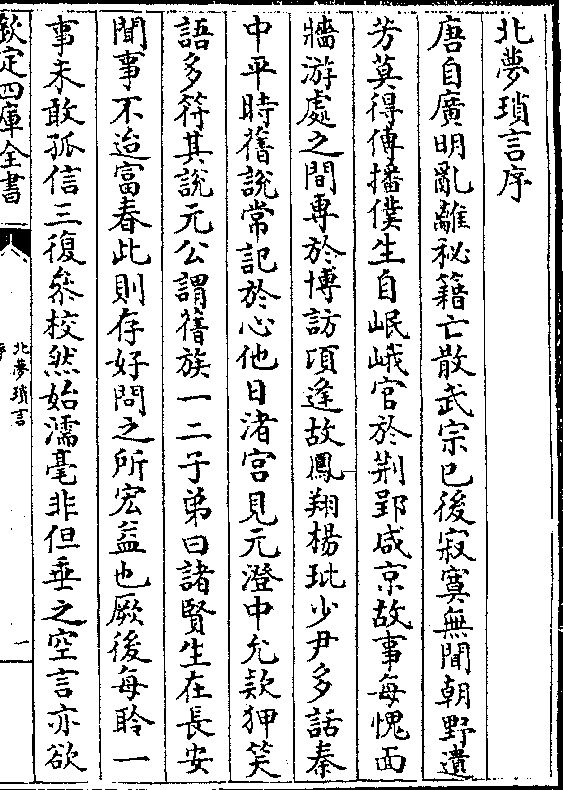 北夢瑣言序
唐自廣明亂離秘籍亡散武宗已後寂寞無聞朝野遺
芳莫得傳播僕生自岷峨官於荆郢咸京故事每愧面
牆游處之間專於博訪頃逢故鳳翔楊玭少尹多話秦
中平時舊說常記於心他日渚宮見元澄中允欵狎笑
語多符其說元公謂舊族一二子弟曰諸賢生在長安
聞事不迨富春此則存好問之所宏益也厥後每聆一
事未敢孤信三復叅校然始濡毫非但垂之空言亦欲
欽定四庫全書
北夢瑣言
序
一